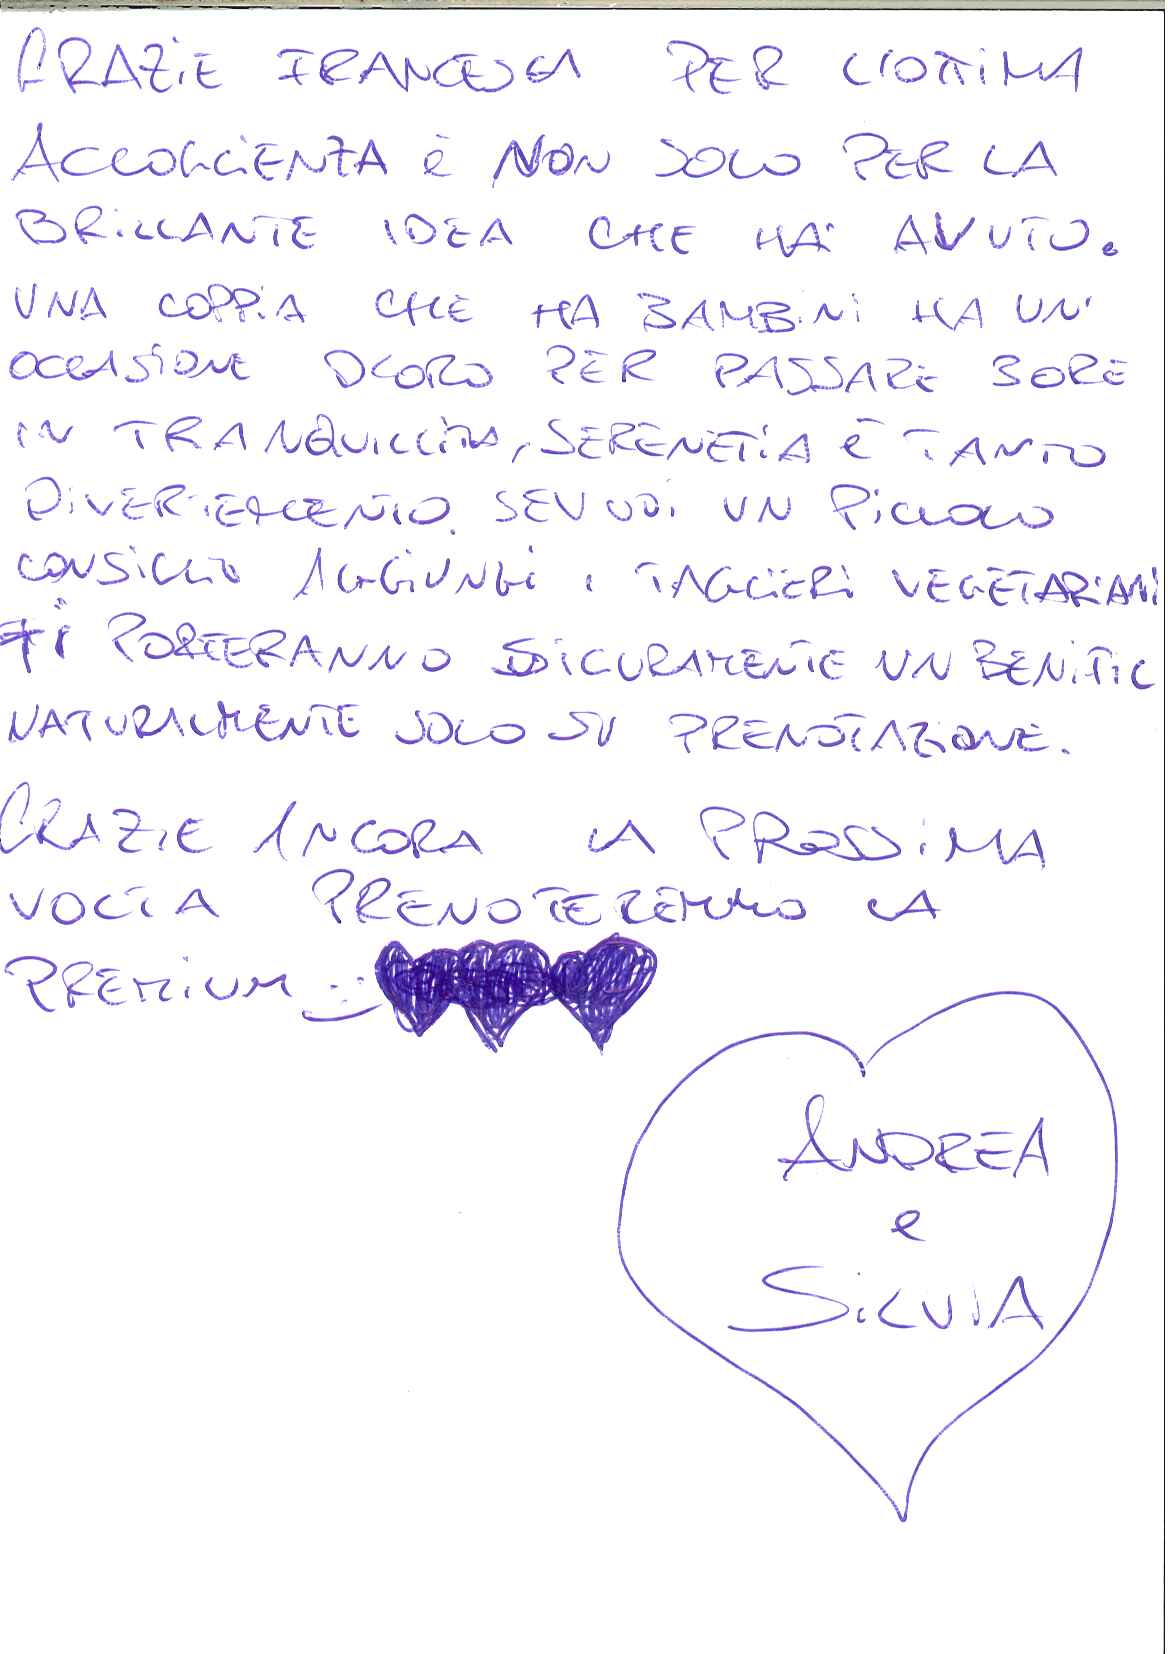 GRAZIE FRANCESCA PER L'OTTIMA
ACCOGLIENZA E NON SOLO PER LA
BRILLANTE IDEA CHE HAI AVUTO.
UNA COPPIA CHE HA BAMBINI HA UN'
OCCASIONE D'ORO PER PASSARE 3 ORE
IN TRANQUILLITÀ, SERENETIA E TANTO
DIVERTIMENTO. SE VUOI UN PICCOLO
CONSIGLIO AGGIUNGI I TAGLIERI VEGETARIANI
TI PORTERANNO SICURAMENTE UN BENIFIC
NATURALMENTE SOLO SU PRENOTAZIONE.
GRAZIE ANCORA LA PROSSIMA
VOLTA PRENOTEREMMO LA
PREMIUM
ANDREA
e
SILVIA